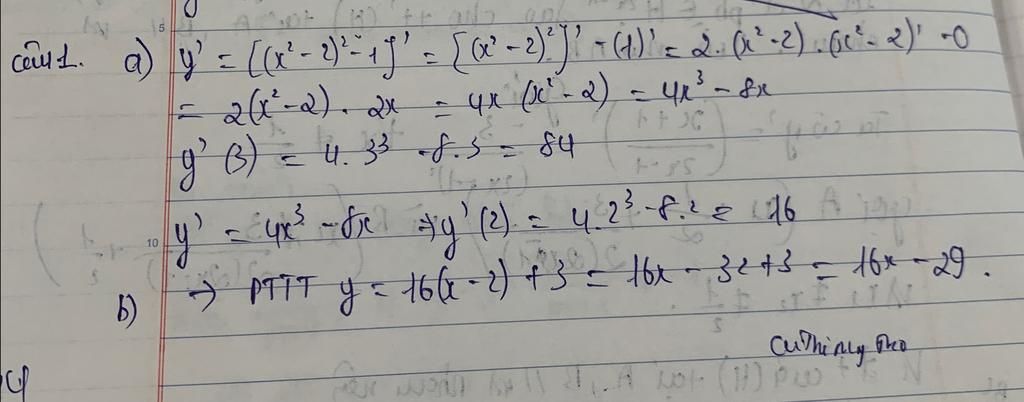 Câu 1. a) y' = [(x² - 2)² - 1]' = [(x² - 2)²]' - (1)' = 2.(x² - 2).(x² - 2)' - 0
= 2(x² - 2) . 2x = 4x (x² - 2) = 4x³ - 8x
y' (3) = 4. 3³ - 8.3 = 84
y' = 4x³ - 8x ⇒ y' (2) = 4.2³ - 8.2 = 16
b) → PTTT y = 16(x - 2) + 3 = 16x - 32 + 3 = 16x - 29.